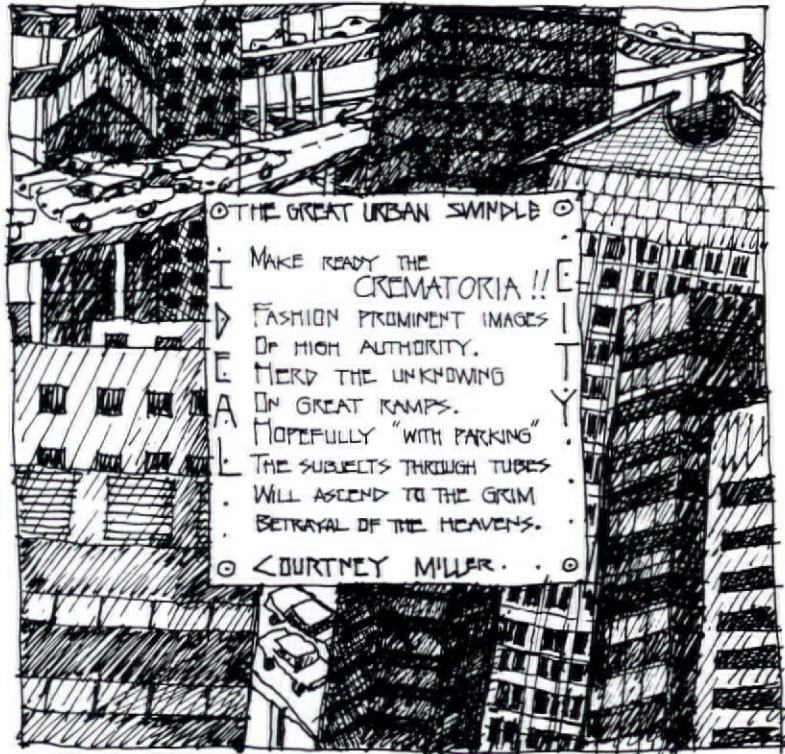 THE GREAT URBAN SWINDLE
IDEAL
MAKE READY THE
CREMATORIA !!
FASHION PROMINENT IMAGES
OF HIGH AUTHORITY.
HERD THE UNKNOWING
ON GREAT RAMPS.
HOPEFULLY "WITH PARKING"
THE SUBJECTS THROUGH TUBES
WILL ASCEND TO THE GRIM
BETRAYAL OF THE HEAVENS.
EITY
COURTNEY MILLER